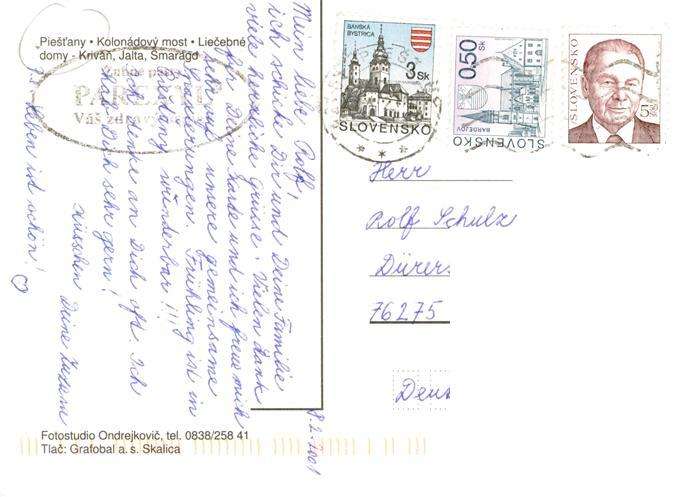 Piešťany • Kolonádový most • Liečebné
domy - Kriváň, Jalta, Smaragd
Mein Liebe Rolf,
ich schicke Dir und Deine Familie
viele herzliche grüsse. Vielen dank
für Deine Karte und ich freue mich
schon auf unsere gemeinsame
Wanderungen. Frühling ist in
Piešťany wunderbar!!!
Ich denke an Dich oft. Ich
hab Dich sehr gern!
Küsschen Deine Zuzana
Leben ist schön!
8.2.2001
BANSKÁ
BYSTRICA
3 Sk
SLOVENSKO
0,50 Sk
BARDEJOV
SLOVENSKO
SLOVENSKO
5 Sk
Herr
Rolf Schulz
Dürer
76275
Deus
Fotostudio Ondrejkovič, tel. 0838/258 41
Tlač: Grafobal a. s. Skalica